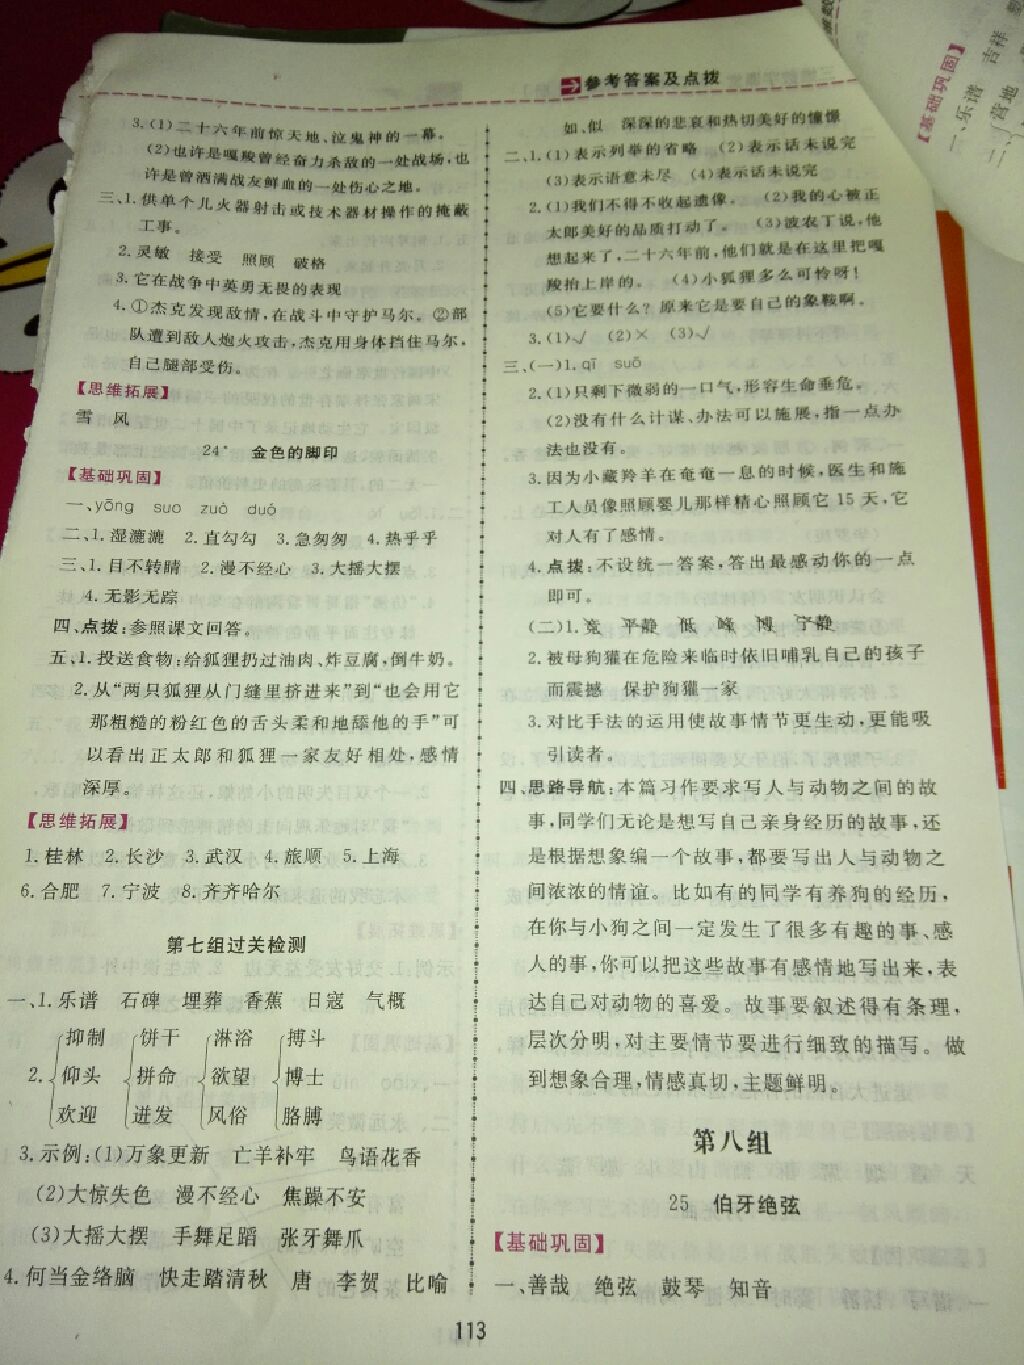 参考答案及点拨
3.(1)二十六年前惊天地、泣鬼神的一幕。
(2)也许是嘎羧曾经奋力杀敌的一处战场,也
许是曾洒满战友鲜血的一处伤心之地。
三、1.供单个儿火器射击或技术器材操作的掩蔽
工事。
2.灵敏 接受 照顾 破格
3.它在战争中英勇无畏的表现
4.①杰克发现敌情,在战斗中守护马尔。②部
队遭到敌人炮火攻击,杰克用身体挡住马尔,
自己腿部受伤。
【思维拓展】
雪 风
24* 金色的脚印
【基础巩固】
一、yōng suo zuò duó
二、1.湿漉漉 2.直勾勾 3.急匆匆 4.热乎乎
三、1.目不转睛 2.漫不经心 3.大摇大摆
4.无影无踪
四、点拨:参照课文回答。
五、1.投送食物:给狐狸扔过油肉、炸豆腐,倒牛奶。
2.从“两只狐狸从门缝里挤进来”到“也会用它
那粗糙的粉红色的舌头柔和地舔他的手”可
以看出正太郎和狐狸一家友好相处,感情
深厚。
【思维拓展】
1.桂林 2.长沙 3.武汉 4.旅顺 5.上海
6.合肥 7.宁波 8.齐齐哈尔
第七组过关检测
一、1.乐谱 石碑 埋葬 香蕉 日寇 气概
抑制 饼干 淋浴 搏斗
2. 仰头 拼命 欲望 博士
欢迎 迸发 风俗 胳膊
3.示例:(1)万象更新 亡羊补牢 鸟语花香
(2)大惊失色 漫不经心 焦躁不安
(3)大摇大摆 手舞足蹈 张牙舞爪
4.何当金络脑 快走踏清秋 唐 李贺 比喻
如、似 深深的悲哀和热切美好的憧憬
二、1.(1)表示列举的省略 (2)表示话未说完
(3)表示语意未尽 (4)表示话未说完
2.(1)我们不得不收起遗像。 (2)我的心被正
太郎美好的品质打动了。 (3)波农丁说,他
想起来了,二十六年前,他们就是在这里把嘎
羧抬上岸的。 (4)小狐狸多么可怜呀!
(5)它要什么? 原来它是要自己的象鞍啊。
3.(1)√ (2)× (3)√
三、(一)1.qī suō
2.(1)只剩下微弱的一口气,形容生命垂危。
(2)没有什么计谋、办法可以施展,指一点办
法也没有。
3.因为小藏羚羊在奄奄一息的时候,医生和施
工人员像照顾婴儿那样精心照顾它15天,它
对人有了感情。
4.点拨:不设统一答案,答出最感动你的一点
即可。
(二)1.竟 平静 低 峰 博 宁静
2.被母狗獾在危险来临时依旧哺乳自己的孩子
而震撼 保护狗獾一家
3.对比手法的运用使故事情节更生动,更能吸
引读者。
四、思路导航:本篇习作要求写人与动物之间的故
事,同学们无论是想写自己亲身经历的故事,还
是根据想象编一个故事,都要写出人与动物之
间浓浓的情谊。比如有的同学有养狗的经历,
在你与小狗之间一定发生了很多有趣的事、感
人的事,你可以把这些故事有感情地写出来,表
达自己对动物的喜爱。故事要叙述得有条理,
层次分明,对主要情节要进行细致的描写。做
到想象合理,情感真切,主题鲜明。
第八组
25 伯牙绝弦
【基础巩固】
一、善哉 绝弦 鼓琴 知音
113
【基础巩固】
一、乐谱 吉祥
营地